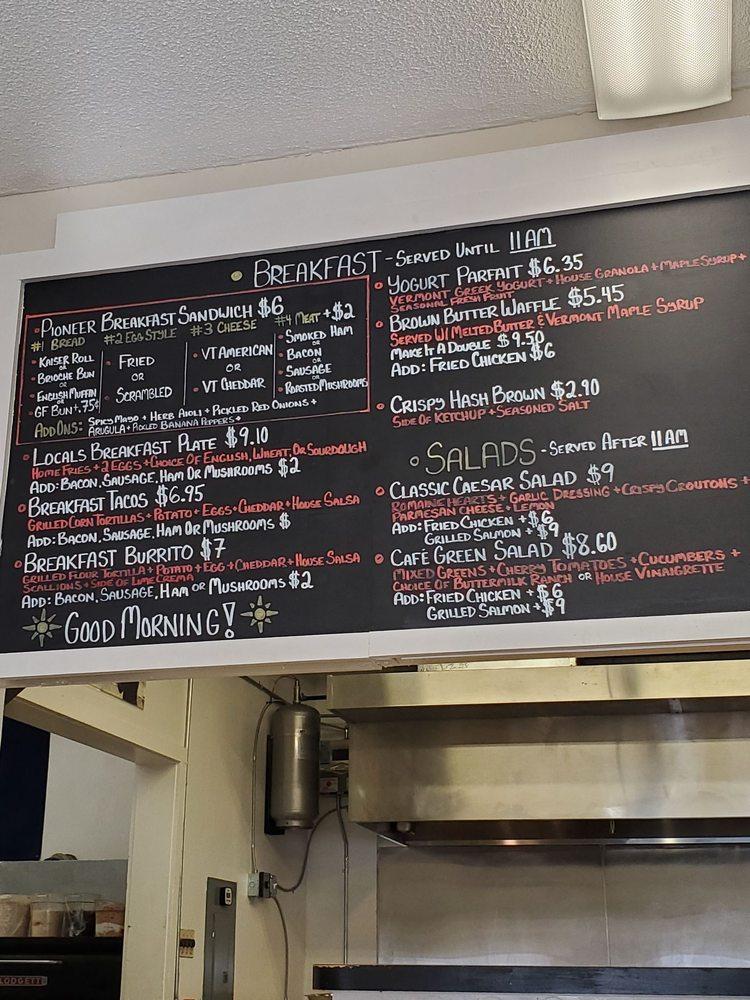 BREAKFAST - SERVED UNTIL 11AM
PIONEER BREAKFAST SANDWICH $6
#1 BREAD #2 EGG STYLE #3 CHEESE #4 MEAT +$2
KAISER ROLL
OR
BRIOCHE BUN
OR
ENGLISH MUFFIN
OR
GF BUN +.75¢
FRIED
OR
SCRAMBLED
VT AMERICAN
OR
VT CHEDDAR
SMOKED HAM
OR
BACON
OR
SAUSAGE
OR
ROASTED MUSHROOMS
ADD ONS: SPICY MAYO + HERB AIOLI + PICKLED RED ONIONS +
ARUGULA + PICKLED BANANA PEPPERS +
LOCALS BREAKFAST PLATE $9.10
HOME FRIES + 2 EGGS + CHOICE OF ENGLISH, WHEAT, OR SOURDOUGH
ADD: BACON, SAUSAGE, HAM OR MUSHROOMS $2
BREAKFAST TACOS $6.95
GRILLED CORN TORTILLAS + POTATO + EGGS + CHEDDAR + HOUSE SALSA
ADD: BACON, SAUSAGE, HAM OR MUSHROOMS $
BREAKFAST BURRITO $7
GRILLED FLOUR TORTILLA + POTATO + EGG + CHEDDAR + HOUSE SALSA
SCALLIONS + SIDE OF LIME CREMA
ADD: BACON, SAUSAGE, HAM OR MUSHROOMS $2
GOOD MORNING!
YOGURT PARFAIT $6.35
VERMONT GREEK YOGURT + HOUSE GRANOLA + MAPLE SYRUP +
SEASONAL FRESH FRUIT
BROWN BUTTER WAFFLE $5.45
SERVED W/ MELTED BUTTER & VERMONT MAPLE SYRUP
MAKE IT A DOUBLE $9.50
ADD: FRIED CHICKEN $6
CRISPY HASH BROWN $2.90
SIDE OF KETCHUP + SEASONED SALT
SALADS - SERVED AFTER 11AM
CLASSIC CAESAR SALAD $9
ROMAINE HEARTS + GARLIC DRESSING + CRISPY CROUTONS +
PARMESAN CHEESE + LEMON
ADD: FRIED CHICKEN +$6
GRILLED SALMON +$9
CAFÉ GREEN SALAD $8.60
MIXED GREENS + CHERRY TOMATOES + CUCUMBERS +
CHOICE OF BUTTERMILK RANCH OR HOUSE VINAIGRETTE
ADD: FRIED CHICKEN +$6
GRILLED SALMON +$9
LODGETT